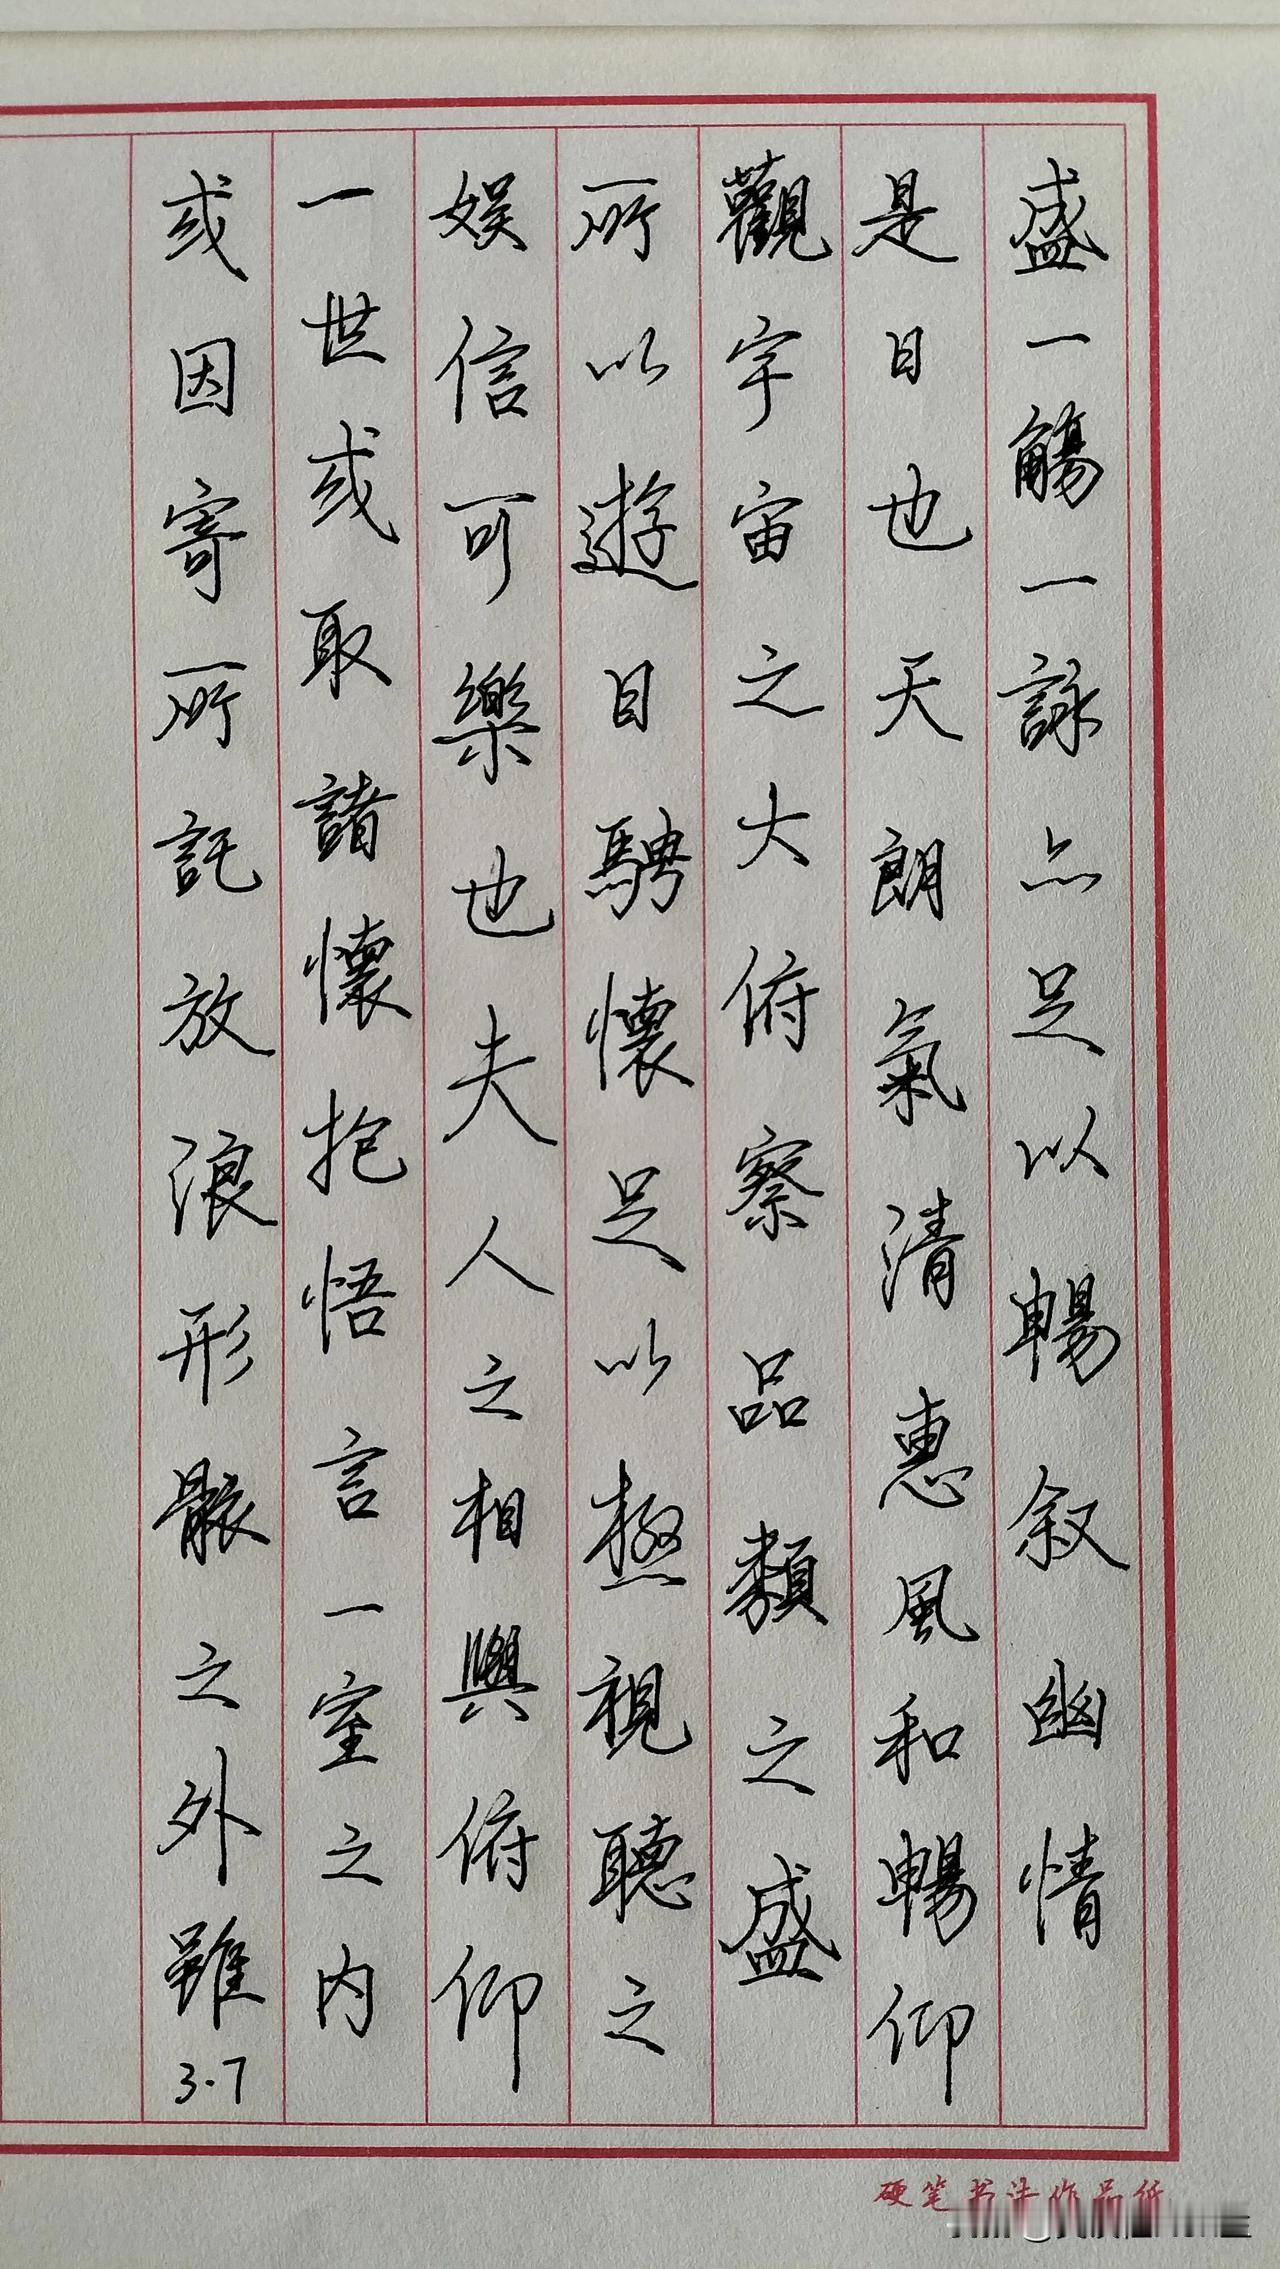 盛一觴一詠亦足以暢叙幽情
是日也天朗氣清惠風和暢仰
觀宇宙之大俯察品類之盛
所以遊目騁懷足以極視聽之
娱信可樂也夫人之相與俯仰
一世或取諸懷抱悟言一室之內
或因寄所託放浪形骸之外雖
3.7
硬笔书法作品纸